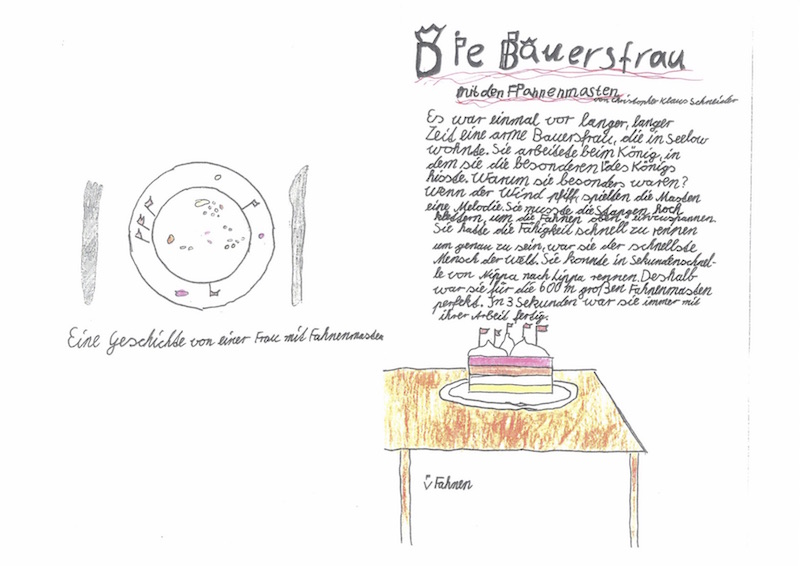 Eine Geschichte von einer Frau mit Fahnenmasten
Die Bauersfrau
mit den Fahnenmasten
von Christopher Klaus Schneider
Es war einmal vor langer, langer
Zeit eine arme Bauersfrau, die in Seelow
wohnte. Sie arbeitete beim König, in
dem sie die besonderen des Königs
hisste. Warum sie besonders waren?
Wenn der Wind pfiff, spielten die Masten
eine Melodie. Sie musste die Stangen hoch
klettern, um die Fahnen oben
Sie hatte die Fähigkeit schnell zu rennen
um genau zu sein, war sie der schnellste
Mensch der Welt. Sie konnte in Sekundenschnel-
le von Nippa nach Lippa rennen. Deshalb
war sie für die 600 m großen Fahnenmasten
perfekt. In 3 Sekunden war sie immer mit
ihrer Arbeit fertig.
Fahnen